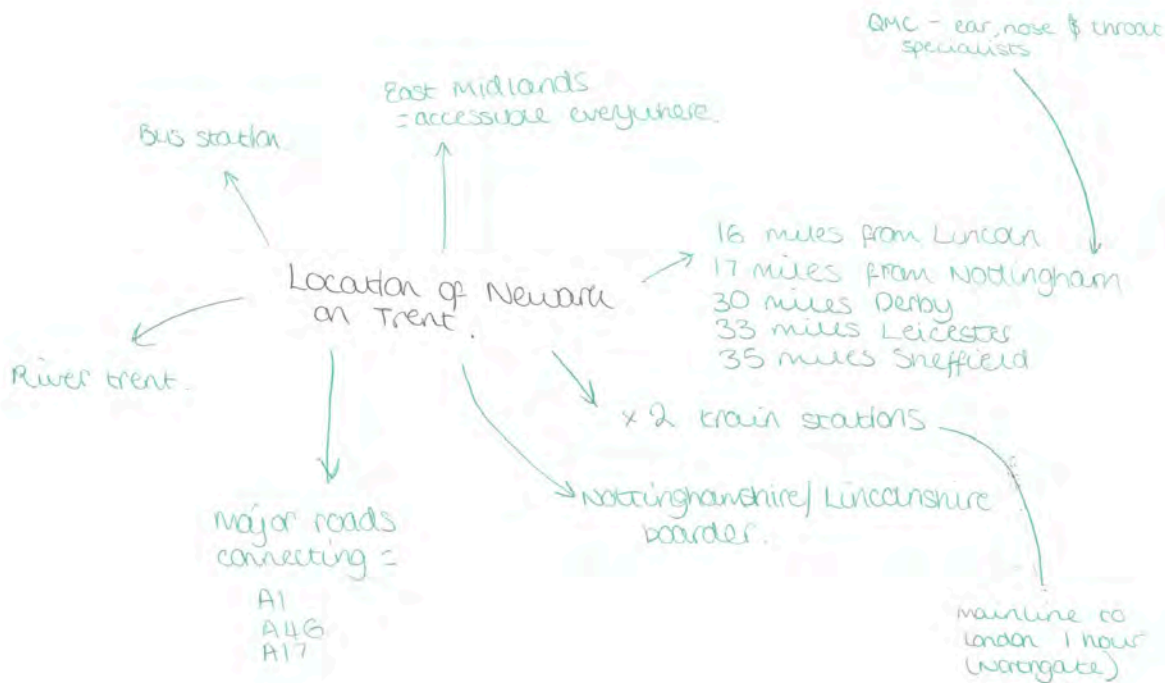 QMC - ear, nose & throat
specialists
East Midlands
= accessible everywhere.
Bus station
16 miles from Lincoln
17 miles from Nottingham
30 miles Derby
33 miles Leicester
35 miles Sheffield
Location of Newark
on Trent.
River trent.
x 2 train stations
Nottinghamshire/Lincolnshire
boarder.
Major roads
connecting =
A1
A46
A17
mainline to
London 1 hour
(Northgate)